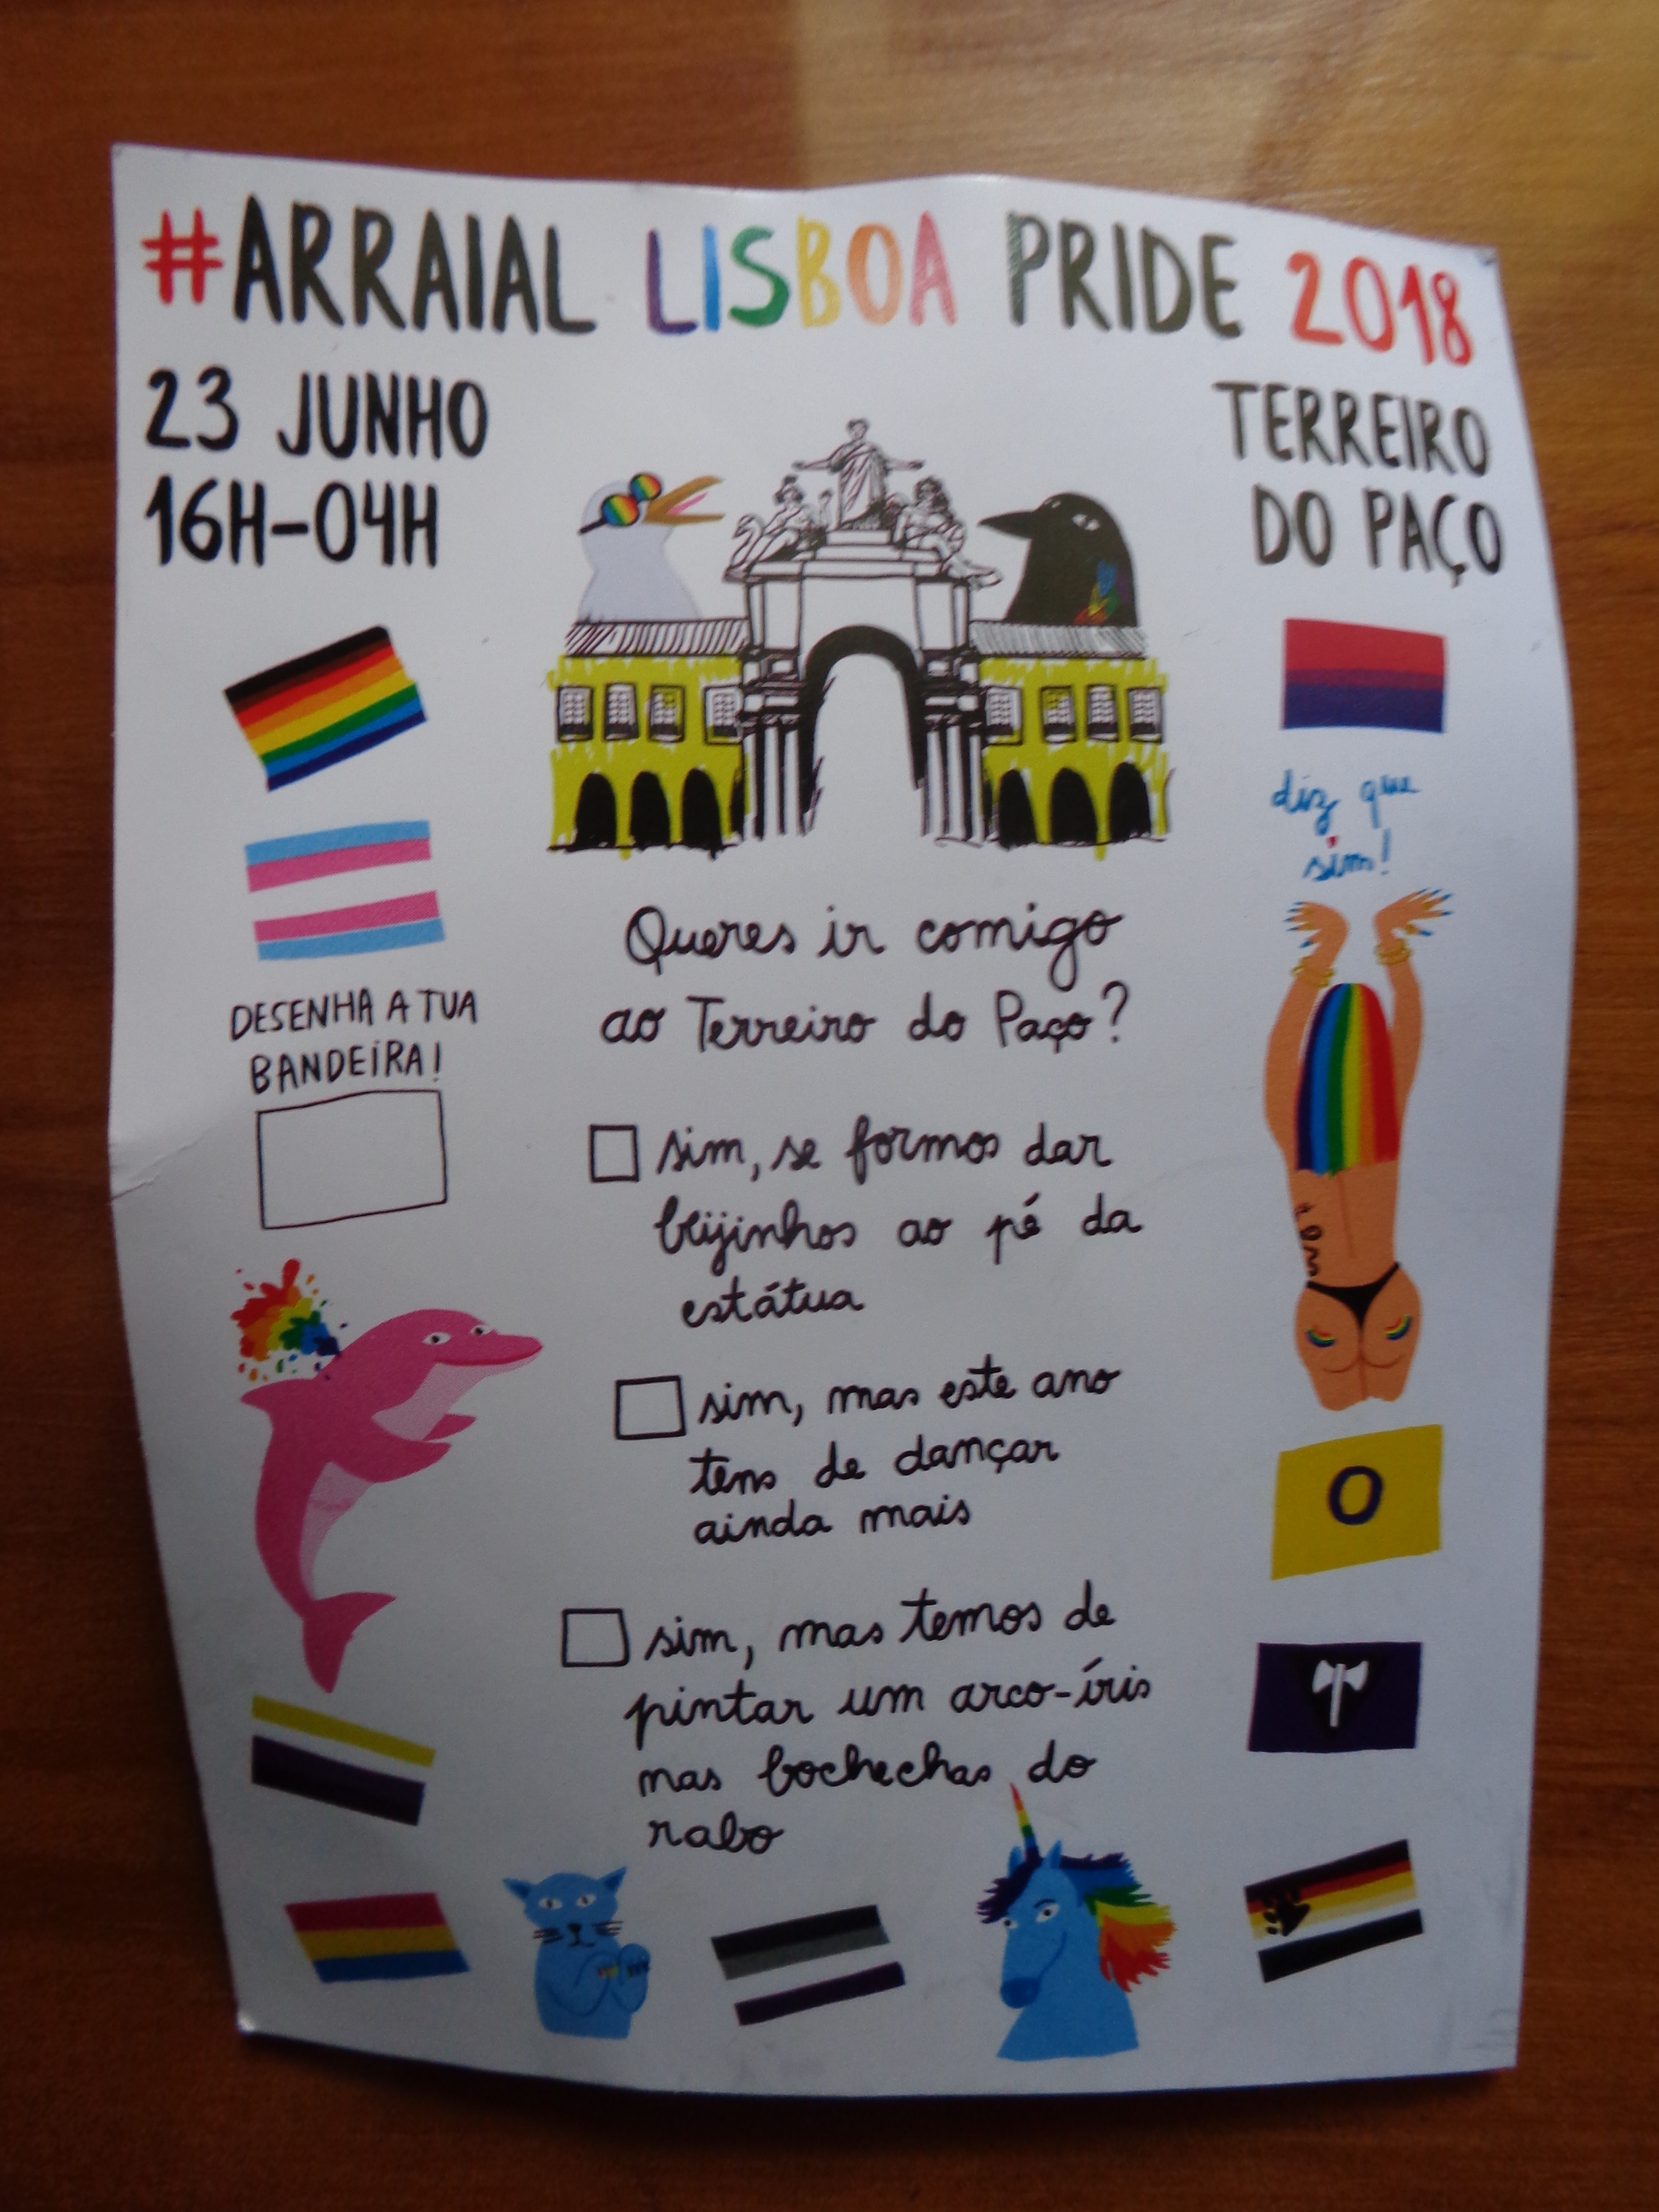 #ARRAIAL LISBOA PRIDE 2018
23 JUNHO
16H-04H
TERREIRO
DO PAÇO
diz que
sim!
DESENHA A TUA
BANDEIRA!
Queres ir comigo
ao Terreiro do Paço?
sim, se formos dar
beijinhos ao pé da
estátua
sim, mas este ano
tens de dançar
ainda mais
sim, mas temos de
pintar um arco-íris
nas bochechas do
rabo